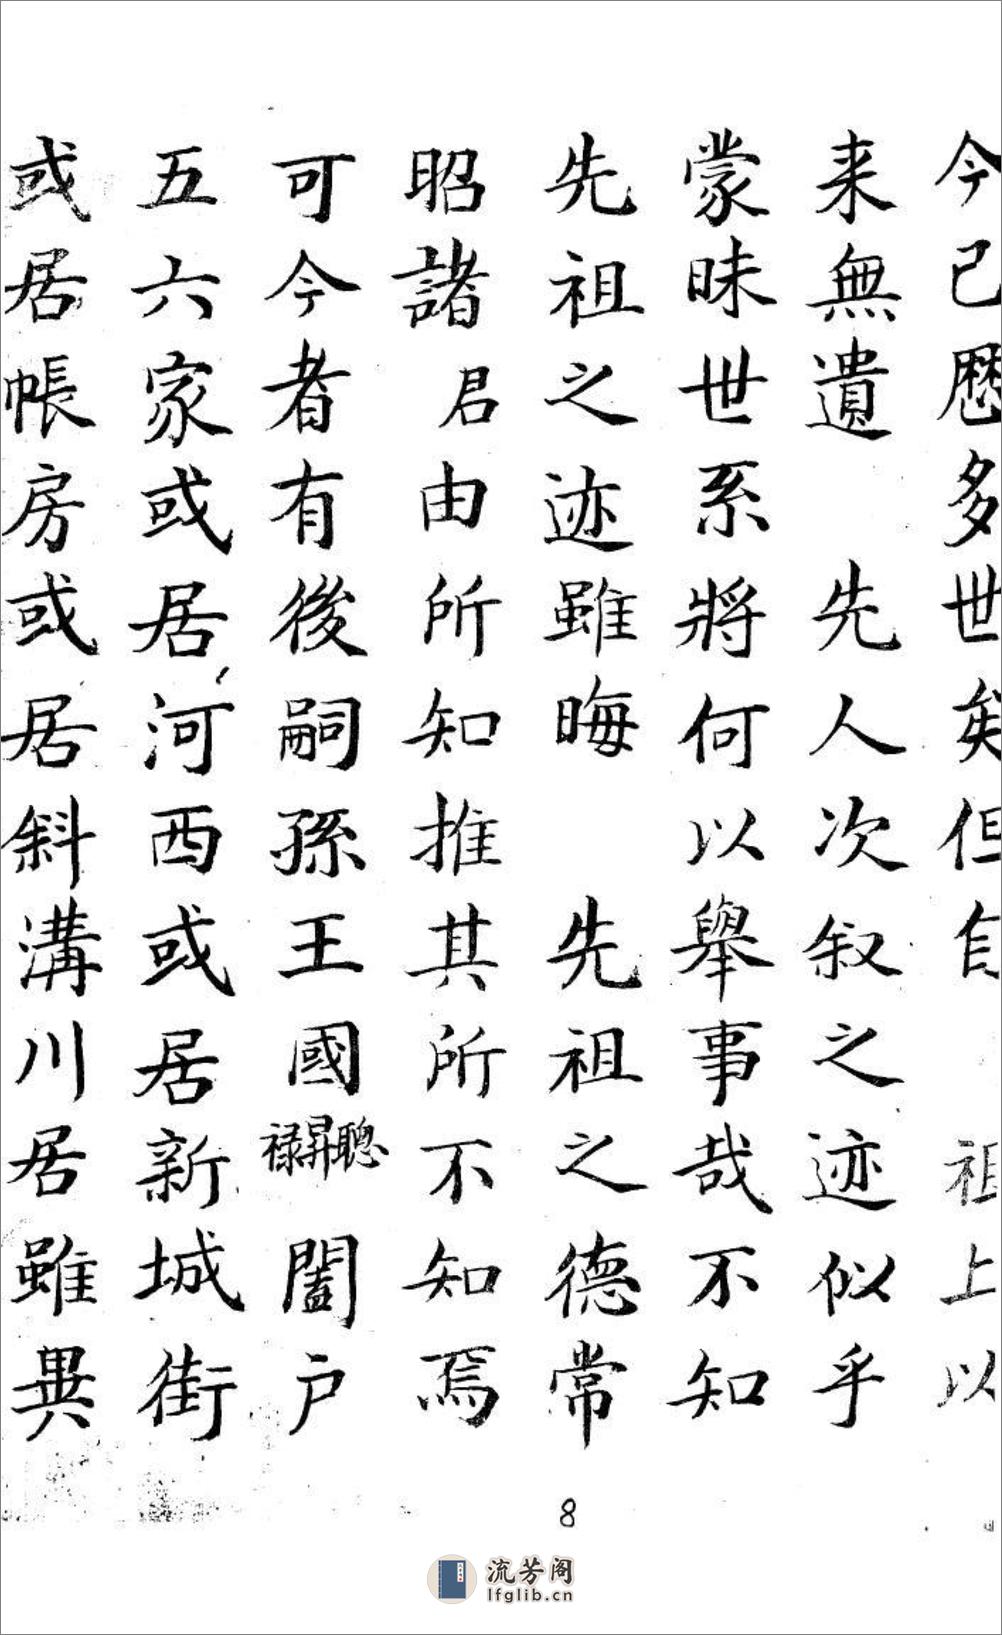 今已歷多世矣但自 祖上以
来無遺 先人次叙之迹似乎
蒙昧世系將何以舉事哉不知
先祖之迹雖晦 先祖之德常
昭諸君由所知推其所不知焉
可今者有後嗣孫王國聰昇禄闔户
五六家或居河西或居新城街
或居帳房或居斜溝川居雖異
8
流芳阁
lfglib.cn